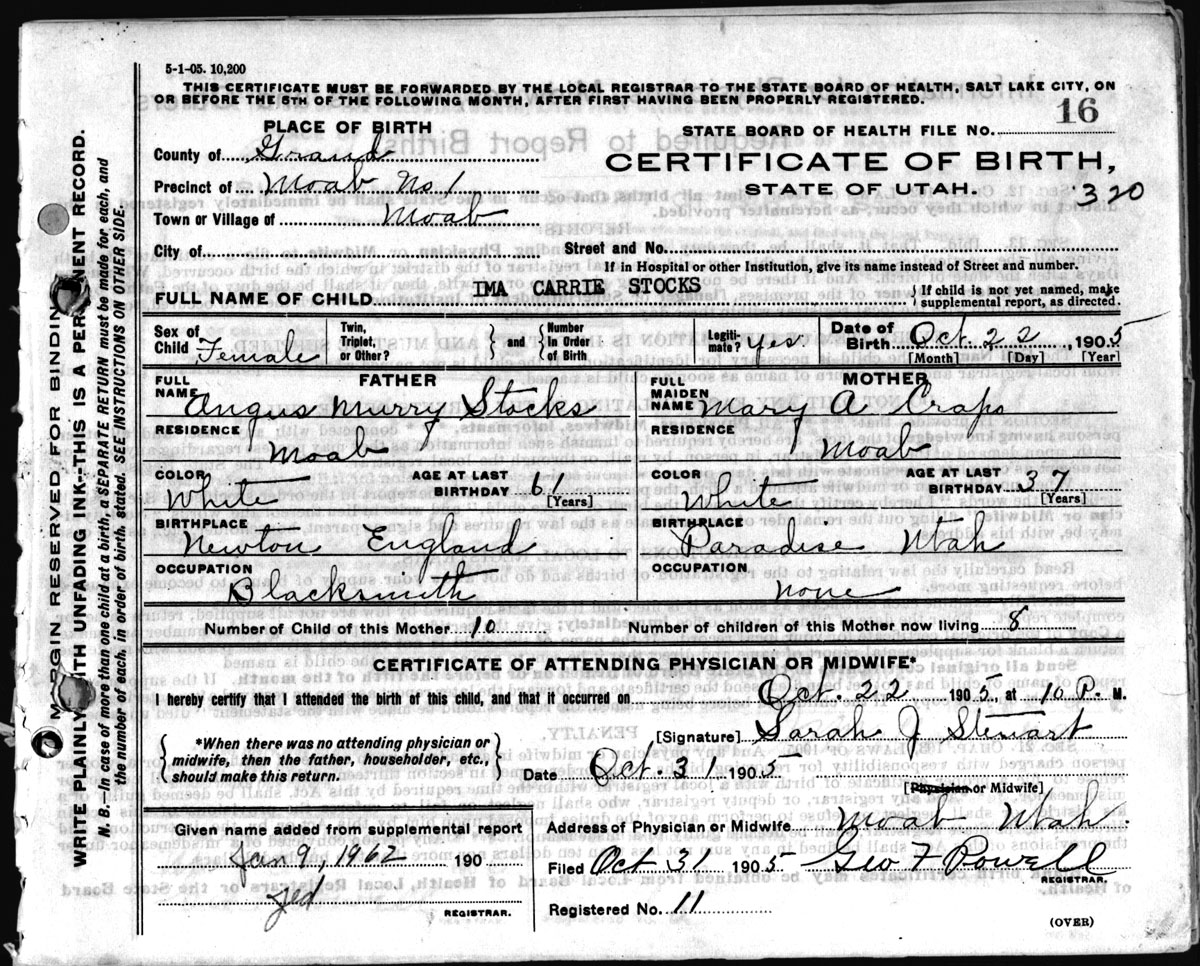 5-1-05. 10,200
THIS CERTIFICATE MUST BE FORWARDED BY THE LOCAL REGISTRAR TO THE STATE BOARD OF HEALTH, SALT LAKE CITY, ON
OR BEFORE THE 5TH OF THE FOLLOWING MONTH, AFTER FIRST HAVING BEEN PROPERLY REGISTERED.
PLACE OF BIRTH
STATE BOARD OF HEALTH FILE No. 16
County of Grand
CERTIFICATE OF BIRTH,
Precinct of Moab No. 1
STATE OF UTAH.
320
Town or Village of Moab
City of
Street and No.
If in Hospital or other Institution, give its name instead of Street and number.
FULL NAME OF CHILD IMA CARRIE STOCKS
{ If child is not yet named, make
supplemental report, as directed.
Sex of Child Female
Twin, Triplet, or Other? } and { Number In Order of Birth
Legiti-mate? yes
Date of Birth Oct. 22, 1905
[Month] [Day] [Year]
FATHER
FULL NAME Angus Murry Stocks
RESIDENCE
Moab
COLOR White
AGE AT LAST BIRTHDAY 61 [Years]
BIRTHPLACE
Newton England
OCCUPATION
Blacksmith
MOTHER
FULL MAIDEN NAME Mary A Crapo
RESIDENCE
Moab
COLOR White
AGE AT LAST BIRTHDAY 37 [Years]
BIRTHPLACE
Paradise Utah
OCCUPATION
none
Number of Child of this Mother 10
Number of children of this Mother now living 8
CERTIFICATE OF ATTENDING PHYSICIAN OR MIDWIFE*
I hereby certify that I attended the birth of this child, and that it occurred on Oct. 22 1905 at 10 P. M.
[Signature] Sarah J Stewart
{ *When there was no attending physician or
midwife, then the father, householder, etc.,
should make this return. }
Date Oct. 31 1905
[Physician or Midwife]
Given name added from supplemental report
Jan 9, 1962 190
REGISTRAR.
Address of Physician or Midwife Moab Utah.
Filed Oct 31 1905 Geo F Powell
REGISTRAR.
Registered No. 11
(OVER)
MARGIN RESERVED FOR BINDING
WRITE PLAINLY WITH UNFADING INK--THIS IS A PERMANENT RECORD.
N. B.—In case of more than one child at a birth, a SEPARATE RETURN must be made for each, and
the number of each, in order of birth, stated. SEE INSTRUCTIONS ON OTHER SIDE.